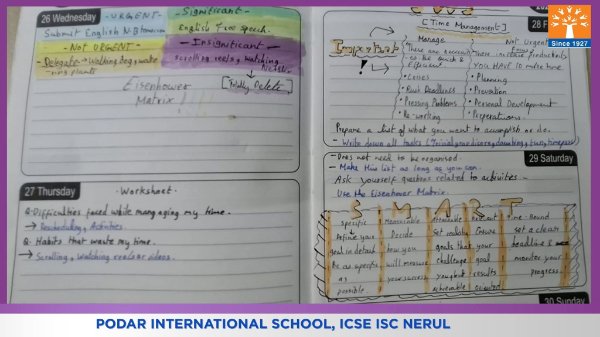 26 Wednesday
-URGENT-
-Significant-
Submit English N.B tomorrow
English Free speech.
-NOT URGENT-
-Insignificant-
-Delegate → Walking dog, water
-ring plants
Scrolling reels, watching
Netflix
[Totally Delete]
Eisenhower
Matrix!
27 Thursday
-Worksheet-
Q. Difficulties faced while managing my time.
→ Rescheduling, Activities.
Q. Habits that waste my time.
→ Scrolling, Watching reels or videos.
[Time Management]
28 F
Important
!
Manage
These are necessary
to be quick &
Efficient
• Crises
• Deadlines
• Pressing Problems
• Re-working
Not Urgent
These increase productivity
YOU HAVE TO make time
• Planning
• Prevention
• Personal Development
• Preparations
Prepare a list of what you want to accomplish or do.
- Write down all tasks
- Does not need to be organised.
29 Saturday
- Make this list as long as you can.
Ask yourself questions related to activities-
Use the Eisenhower Matrix.
S M A R T
Specific
Define your
goal in detail
As as specific
as
possible
Measurable
Decide
how you
will measure
your success
Attainable
Set realistic
goals that
challenge
you but
achievable
goal
results
oriented
Time-Bound
set a clear
deadline &
monitor your
progress.
30 Sunday
Since 1927
PODAR INTERNATIONAL SCHOOL, ICSE ISC NERUL